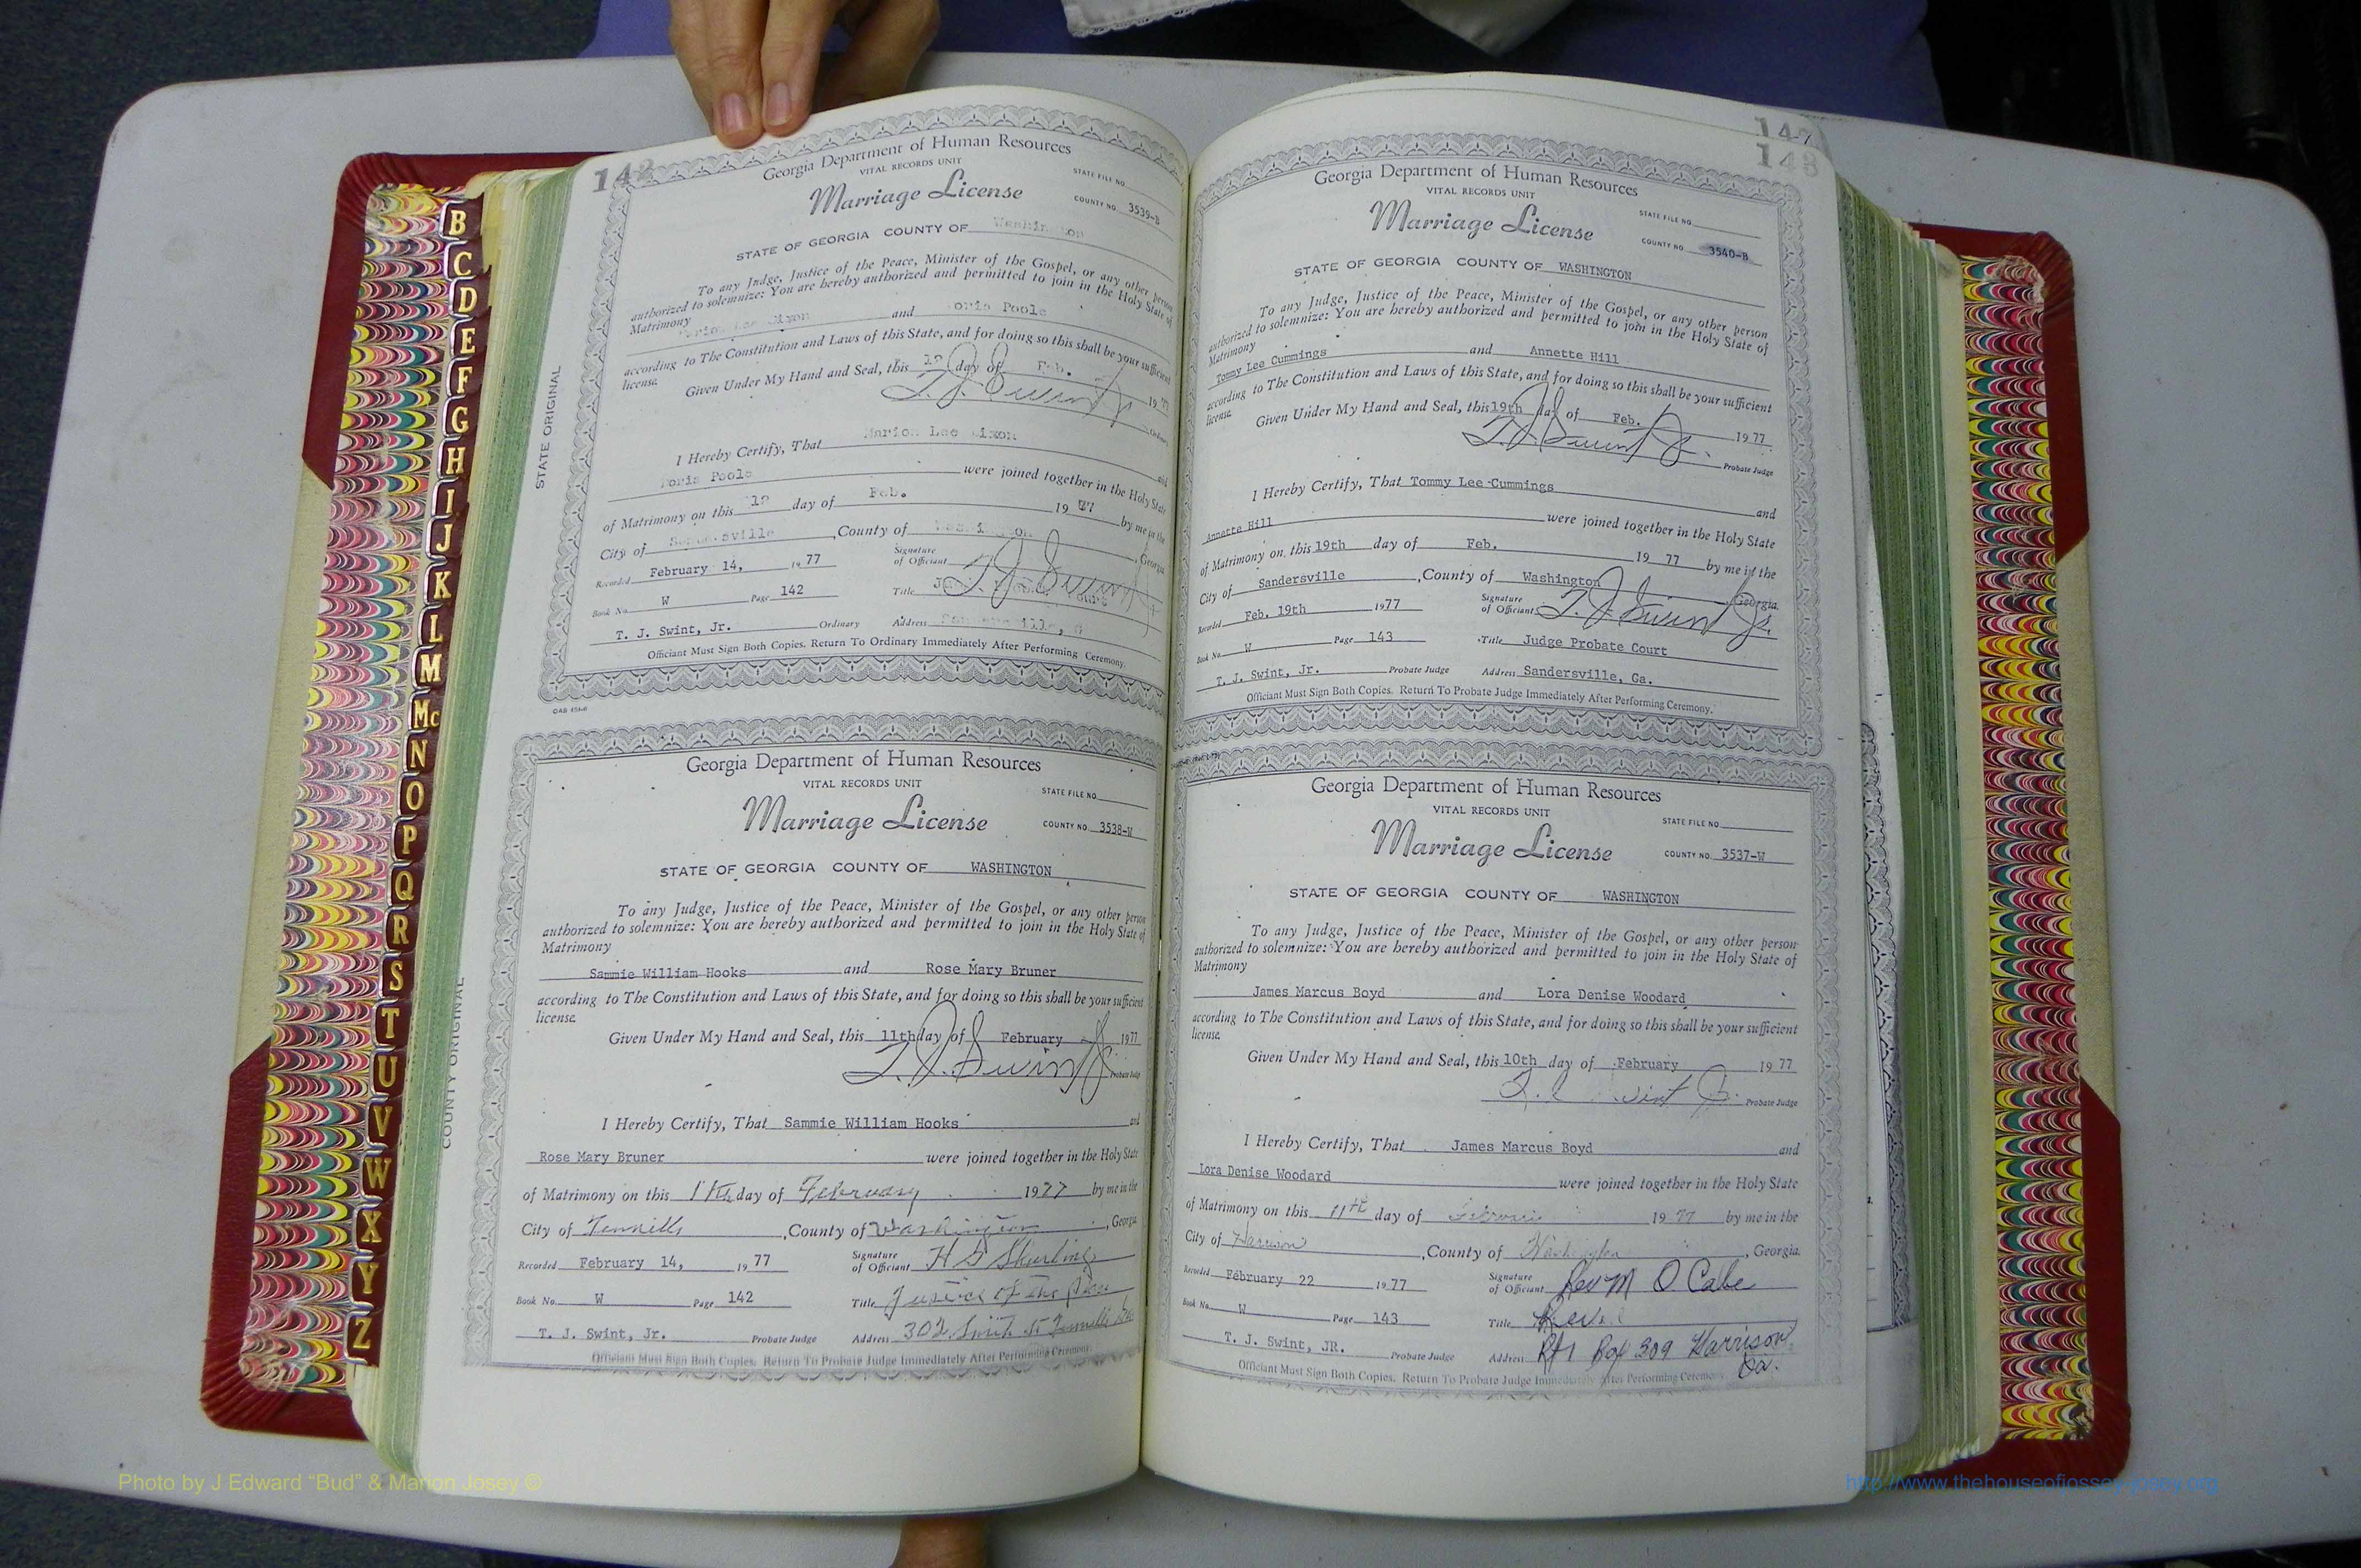 142
Georgia Department of Human Resources
VITAL RECORDS UNIT
STATE FILE NO.
Marriage License
COUNTY NO. 3539-B
STATE OF GEORGIA COUNTY OF Washington
To any Judge, Justice of the Peace, Minister of the Gospel, or any other person
authorized to solemnize: You are hereby authorized and permitted to join in the Holy State of
Matrimony
Lee Dixon and Poole
according to The Constitution and Laws of this State, and for doing so this shall be your sufficient
license.
Given Under My Hand and Seal, this 12 day of Feb. 19 77
T. J. Swint Jr
Ordinary
I Hereby Certify, That Marion Lee Dixon and
Poole were joined together in the Holy State
of Matrimony on this 12 day of Feb. 19 77 by me in the
City of Sandersville, County of Washington, Georgia
Recorded February 14, 19 77 Signature of Officiant T. J. Swint Jr
Book No. W Page 142 Title
T. J. Swint, Jr. Ordinary Address
Officiant Must Sign Both Copies. Return To Ordinary Immediately After Performing Ceremony.
STATE ORIGINAL
Georgia Department of Human Resources
VITAL RECORDS UNIT
STATE FILE NO.
Marriage License
COUNTY NO. 3538-W
STATE OF GEORGIA COUNTY OF WASHINGTON
To any Judge, Justice of the Peace, Minister of the Gospel, or any other person
authorized to solemnize: You are hereby authorized and permitted to join in the Holy State of
Matrimony
Sammie William Hooks and Rose Mary Bruner
according to The Constitution and Laws of this State, and for doing so this shall be your sufficient
license.
Given Under My Hand and Seal, this 11th day of February 1977
T. J. Swint Jr.
Probate Judge
I Hereby Certify, That Sammie William Hooks and
Rose Mary Bruner were joined together in the Holy State
of Matrimony on this 11th day of February 1977 by me in the
City of Tennille, County of Washington, Georgia
Recorded February 14, 19 77 Signature of Officiant H
Book No. W Page 142 Title Justice of the Peace
T. J. Swint, Jr. Probate Judge Address 302 Smith St Tennille Ga
Officiant Must Sign Both Copies. Return To Probate Judge Immediately After Performing Ceremony.
COUNTY ORIGINAL
147
143
Georgia Department of Human Resources
VITAL RECORDS UNIT
STATE FILE NO.
Marriage License
COUNTY NO. 3540-B
STATE OF GEORGIA COUNTY OF WASHINGTON
To any Judge, Justice of the Peace, Minister of the Gospel, or any other person
authorized to solemnize: You are hereby authorized and permitted to join in the Holy State of
Matrimony
Tommy Lee Cummings and Annette Hill
according to The Constitution and Laws of this State, and for doing so this shall be your sufficient
license.
Given Under My Hand and Seal, this 19th day of Feb. 1977
T. J. Swint Jr.
Probate Judge
I Hereby Certify, That Tommy Lee Cummings and
Annette Hill were joined together in the Holy State
of Matrimony on this 19th day of Feb. 19 77 by me in the
City of Sandersville, County of Washington, Georgia.
Recorded Feb. 19th 1977 Signature of Officiant T. J. Swint Jr.
Book No. W Page 143 Title Judge Probate Court
T. J. Swint, Jr. Probate Judge Address Sandersville, Ga.
Officiant Must Sign Both Copies. Return To Probate Judge Immediately After Performing Ceremony.
Georgia Department of Human Resources
VITAL RECORDS UNIT
STATE FILE NO.
Marriage License
COUNTY NO. 3537-W
STATE OF GEORGIA COUNTY OF WASHINGTON
To any Judge, Justice of the Peace, Minister of the Gospel, or any other person
authorized to solemnize: You are hereby authorized and permitted to join in the Holy State of
Matrimony
James Marcus Boyd and Lora Denise Woodard
according to The Constitution and Laws of this State, and for doing so this shall be your sufficient
license.
Given Under My Hand and Seal, this 10th day of February 19 77
Probate Judge
I Hereby Certify, That James Marcus Boyd and
Lora Denise Woodard were joined together in the Holy State
of Matrimony on this 11th day of 19 77 by me in the
City of Harrison, County of Washington, Georgia.
Recorded February 22 1977 Signature of Officiant Rev M O Cabe
Book No. W Page 143 Title Rev.
T. J. Swint, JR. Probate Judge Address Rt 1 Box 309 Harrison
Ga.
Officiant Must Sign Both Copies. Return To Probate Judge Immediately After Performing Ceremony.
B
C
D
E
F
G
H
I
J
K
L
M
Mc
N
O
P
Q
R
S
T
U
V
W
X
Y
Z
Photo by J Edward “Bud” & Marion Josey ©
http://www.thehouseofjossey-josey.org